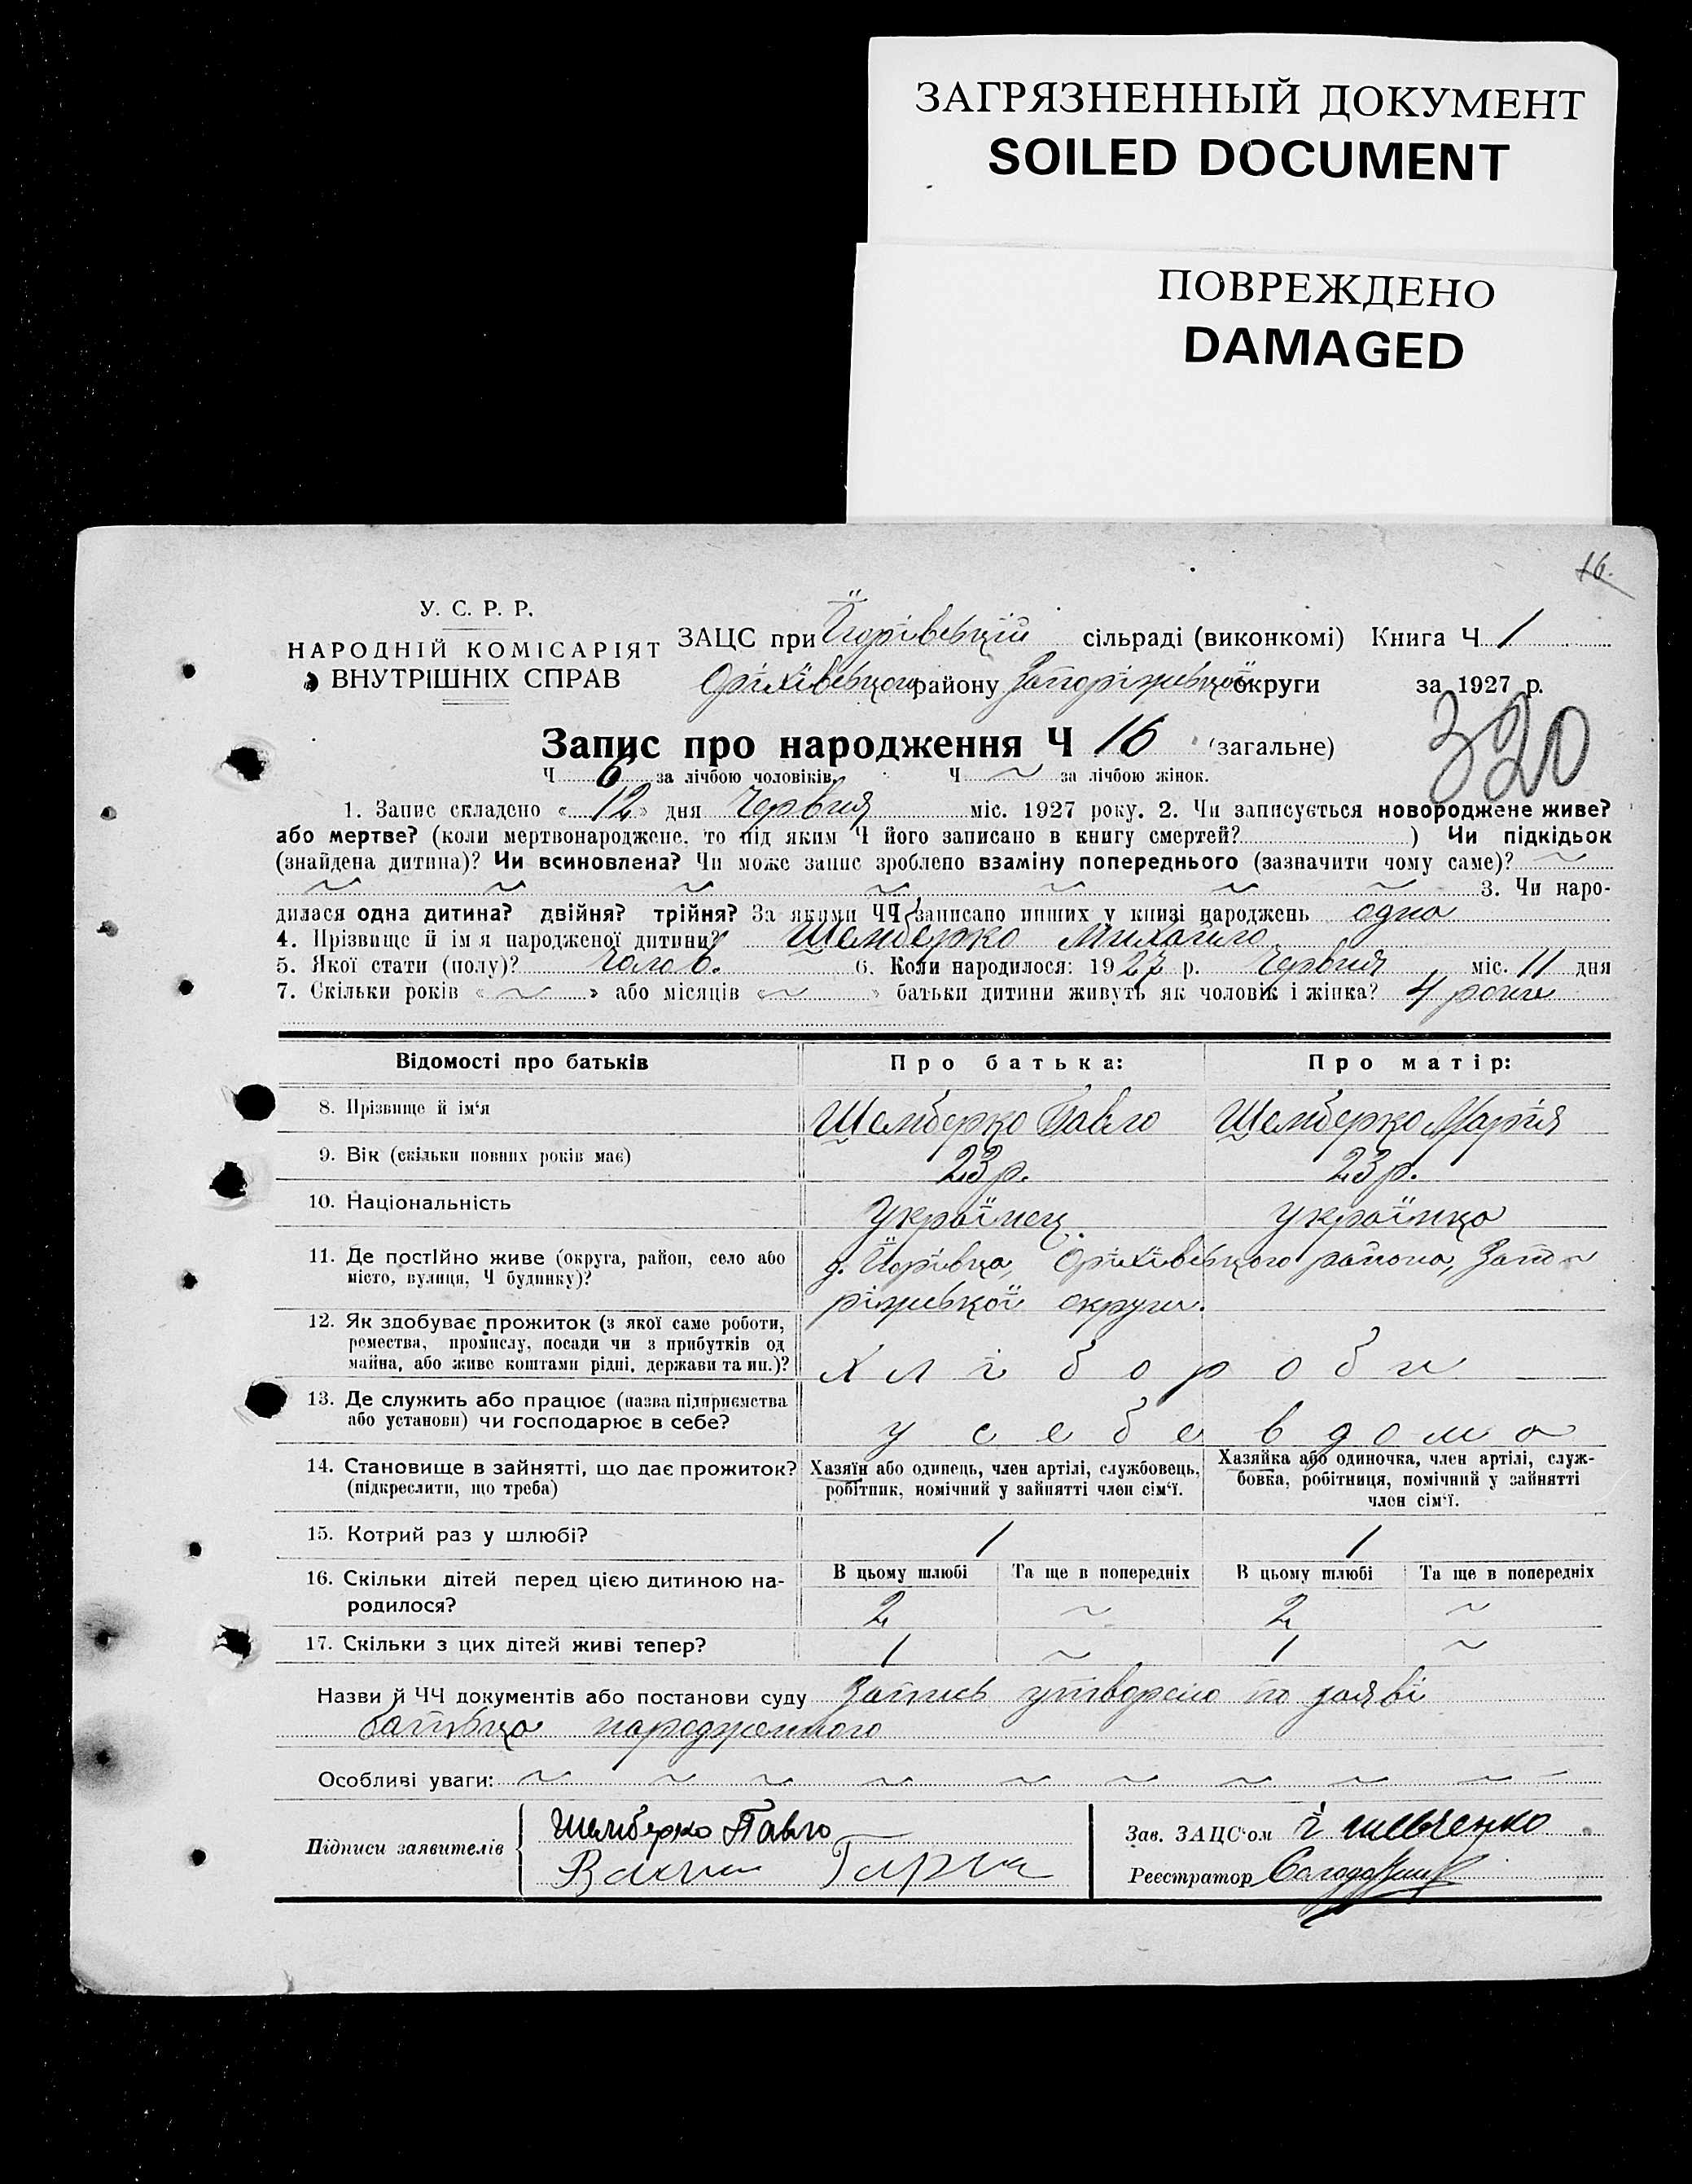 ЗАГРЯЗНЕННЫЙ ДОКУМЕНТ
SOILED DOCUMENT
ПОВРЕЖДЕНО
DAMAGED
16.
У. С. Р. Р.
НАРОДНІЙ КОМІСАРІЯТ
ВНУТРІШНІХ СПРАВ
ЗАЦС при Їгорівській сільраді (виконкомі) Книга Ч 1
Оріхівського району Запоріжської округи за 1927 р.
320
Запис про народження Ч 16 (загальне)
Ч 6 за лічбою чоловіків. Ч ~ за лічбою жінок.
1. Запис складено « 12 » дня Червня міс. 1927 року. 2. Чи записується новороджене живе?
або мертве? (коли мертвонароджене, то під яким Ч його записано в книгу смертей? ) Чи підкідьок
(знайдена дитина)? Чи всиновлена? Чи може запис зроблено взаміну попереднього (зазначити чому саме)? ~
~ ~ ~ ~ ~ ~ ~ 3. Чи наро-
дилася одна дитина? двійня? трійня? За якими ЧЧ записано инших у книзі народжень одна
4. Прізвище й ім'я народженої дитини? Шемберко Михайло
5. Якої стати (полу)? Чолов. 6. Коли народилося: 1927 р. Червня міс. 11 дня
7. Скільки років « ~ » або місяців « ~ » батьки дитини живуть як чоловік і жінка? 4 роки
Відомості про батьків Про батька: Про матір:
8. Прізвище й ім'я Шемберко Павло Шемберко Марія
9. Вік (скільки повних років має) 23 р. 23 р.
10. Національність Українец. Українка
11. Де постійно живе (округа, район, село або
місто, вулиця, Ч будинку)?
д. Їгорівка, Оріхівського района, Запо
ріжської округи.
12. Як здобуває прожиток (з якої саме роботи,
ремества, промислу, посади чи з прибутків од
майна, або живе коштами рідні, держави та ин.)?
хлібороби
13. Де служить або працює (назва підприємства
або установи) чи господарює в себе?
у себе в дома
14. Становище в зайнятті, що дає прожиток?
(підкреслити, що треба)
Хазяїн або одинець, член артілі, службовець,
робітник, помічний у зайнятті член сім'ї.
Хазяйка або одиночка, член артілі, служ-
бовка, робітниця, помічний у зайнятті
член сім'ї.
15. Котрий раз у шлюбі? 1 1
16. Скільки дітей перед цією дитиною на-
родилося?
В цьому шлюбі Та ще в попередніх В цьому шлюбі Та ще в попередніх
2 ~ 2 ~
17. Скільки з цих дітей живі тепер? 1 ~ 1 ~
Назви й ЧЧ документів або постанови суду Запись утворено по заяві
батька народженного
Особливі уваги: ~ ~ ~ ~ ~ ~ ~ ~ ~
Підписи заявителів
Шемберко Павло
Зав. ЗАЦС'ом Шевченко
Реєстратор